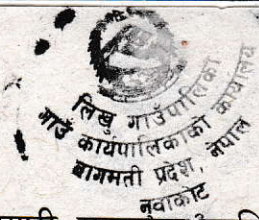 लिखु गाउँपालिका
गाउँ कार्यपालिकाको कार्यालय
बागमती प्रदेश, नेपाल
नुवाकोट